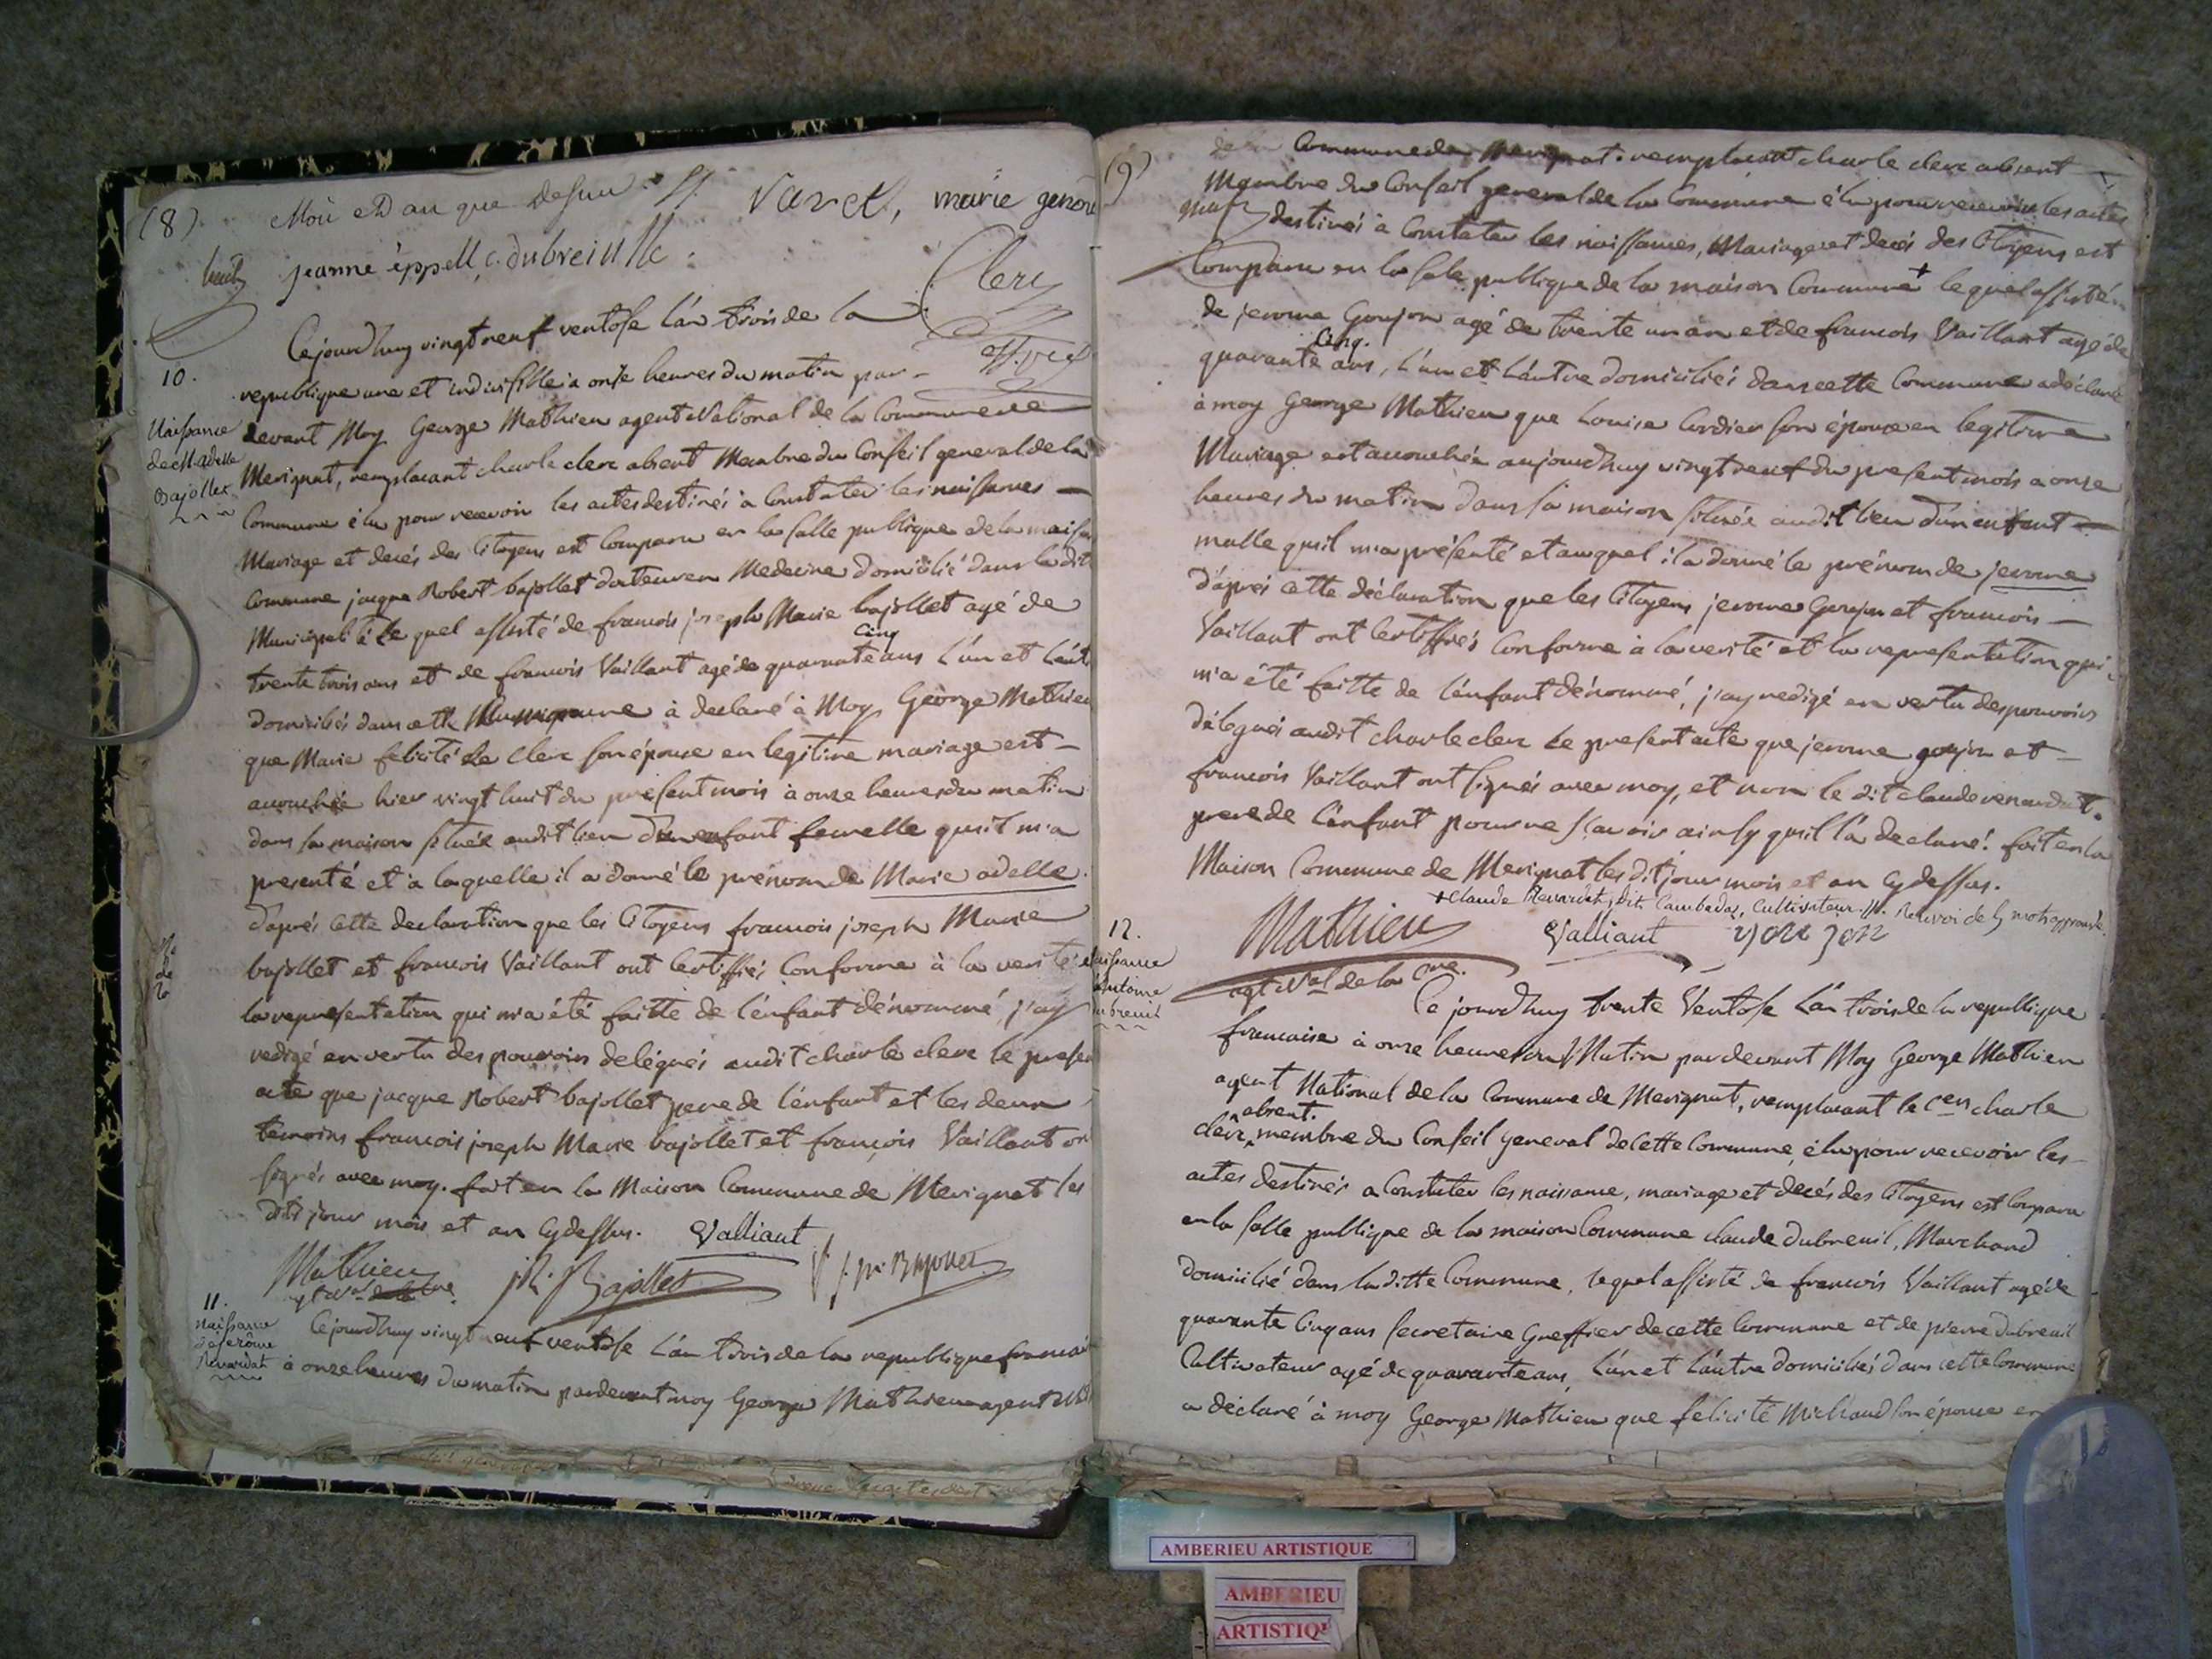 (8)
Mois et an que dessus
Varet, marie genou
huit
jeanne éppell c. dubreuille
Clerc
10.
Naissance
de M adelle
Bajollet
Cejourdhuy vingt neuf ventose l'an trois de la
republique une et indivisible à onse heures du matin par-
devant Moy George Mathieu agent National de la Commune de
Merignat, remplacant charle clerc absent Membre du Conseil general de la
Commune élu pour recevoir les actes destinés à Constater les naissances
Mariage et decés des Citoyens est Comparu en la salle publique de la maison
Commune jacque Robert bajollet docteur en Medecine domicilié dans la dite
Municipalité le quel assisté de francois joseph Marie bajollet agé de
trente trois ans et de francois Vaillant agé de quarante cinq ans L'un et L'aut
domiciliés dans cette Commune à declaré à Moy George Mathieu
que Marie felicité Le Clerc son épouse en legitime mariage est
accouchée hier vingt huit du present mois à onze heures du matin
dans sa maison située audit lieu d'un enfant femelle qu'il m'a
presenté et a laquelle il a donné le prénom de Marie adelle.
d'aprés cette declaration que les Citoyens francois joseph Marie
bajollet et francois Vaillant ont Certiffiés Conforme à la verité et
la representation qui m'a été faitte de l'enfant dénommé, j'ay
redigé en vertu des pouvoirs delégués audit charle clerc le presen
acte que jacque Robert bajollet pere de l'enfant et les deux
temoins francois joseph Marie bajollet et françois Vaillant on
signés avec moy. fait en la Maison Commune de Merignat les
dits jour mois et an cydessus. Valliant
Mathieu
agt Nal de la Cne. JR. Bajollet
11.
naissance
de jerôme
Renardat
Cejourdhuy vingt neuf ventose l'an trois de la republique francai
à onze heures du matin pardevant moy George Mathieu agent Natl
(9)
neuf
de la Commune de Merignat remplacant charle clerc absent
Membre du Conseil general de la Commune élu pour recevoir les actes
destinés à Constater les naissances, Mariage et decés des Citoyens est
Comparu en la sale publique de la maison Commune + lequel assisté
de jerome Goujon agé de trente un an et de francois Vaillant agé de
quarante Cinq. ans, L'un et L'autre domiciliés dans cette Commune a déclaré
à moy George Mathieu que Louise Cordier son épouse en legitime
Mariage est accouchée aujourdhuy vingt neuf du present mois a onze
heures du matin dans sa maison située audit lieu d'un enfant
malle qu'il m'a présenté et auquel il a donné le prénom de jerome
d'aprés cette déclaration que les Citoyens jerome Goujon et francois
Vaillant ont Certiffiés Conforme à la verité et la representation qui
m'a été faitte de l'enfant dénommé, j'ay redigé en vertu des pouvoirs
délegués audit charle clerc le present acte que jerome goujon et
francois Vaillant ont signés avec moy, et non le dit claude renardat
pere de l'enfant pour ne sçavoir ainsy qu'il l'a declaré. fait en la
Maison Commune de Merignat les dit jour mois et an cydessus.
+ Claude Renardat, dit Cambadaz, Cultivateur. Renvoi de 5 mots approuvé.
Mathieu Valliant goujon
agt Nal de la Cne.
12.
Naissance
d'antoine
dubreuil
Ce jourdhuy trente Ventose L'an trois de la republique
francaise à onze heures du Matin pardevant Moy George Mathieu
agent National de la Commune de Merignat, remplacant le cen charle
clerc absent. membre du Conseil general de Cette Commune, élu pour recevoir les
actes destinés a Constater les naissance, mariage et decés des Citoyens est Comparu
en la salle publique de la maison Commune claude dubreuil, Marchand
domicilié dans la ditte Commune, lequel assisté de francois Vaillant agé de
quarante Cinq ans secretaire Greffier de cette Commune et de pierre dubreuil
Cultivateur agé de quarante ans, L'un et L'autre domiciliés dans cette Commune
a déclaré à moy George Mathieu que felicité Michaud son épouse en
AMBERIEU ARTISTIQUE
AMBERIEU
ARTISTIQU